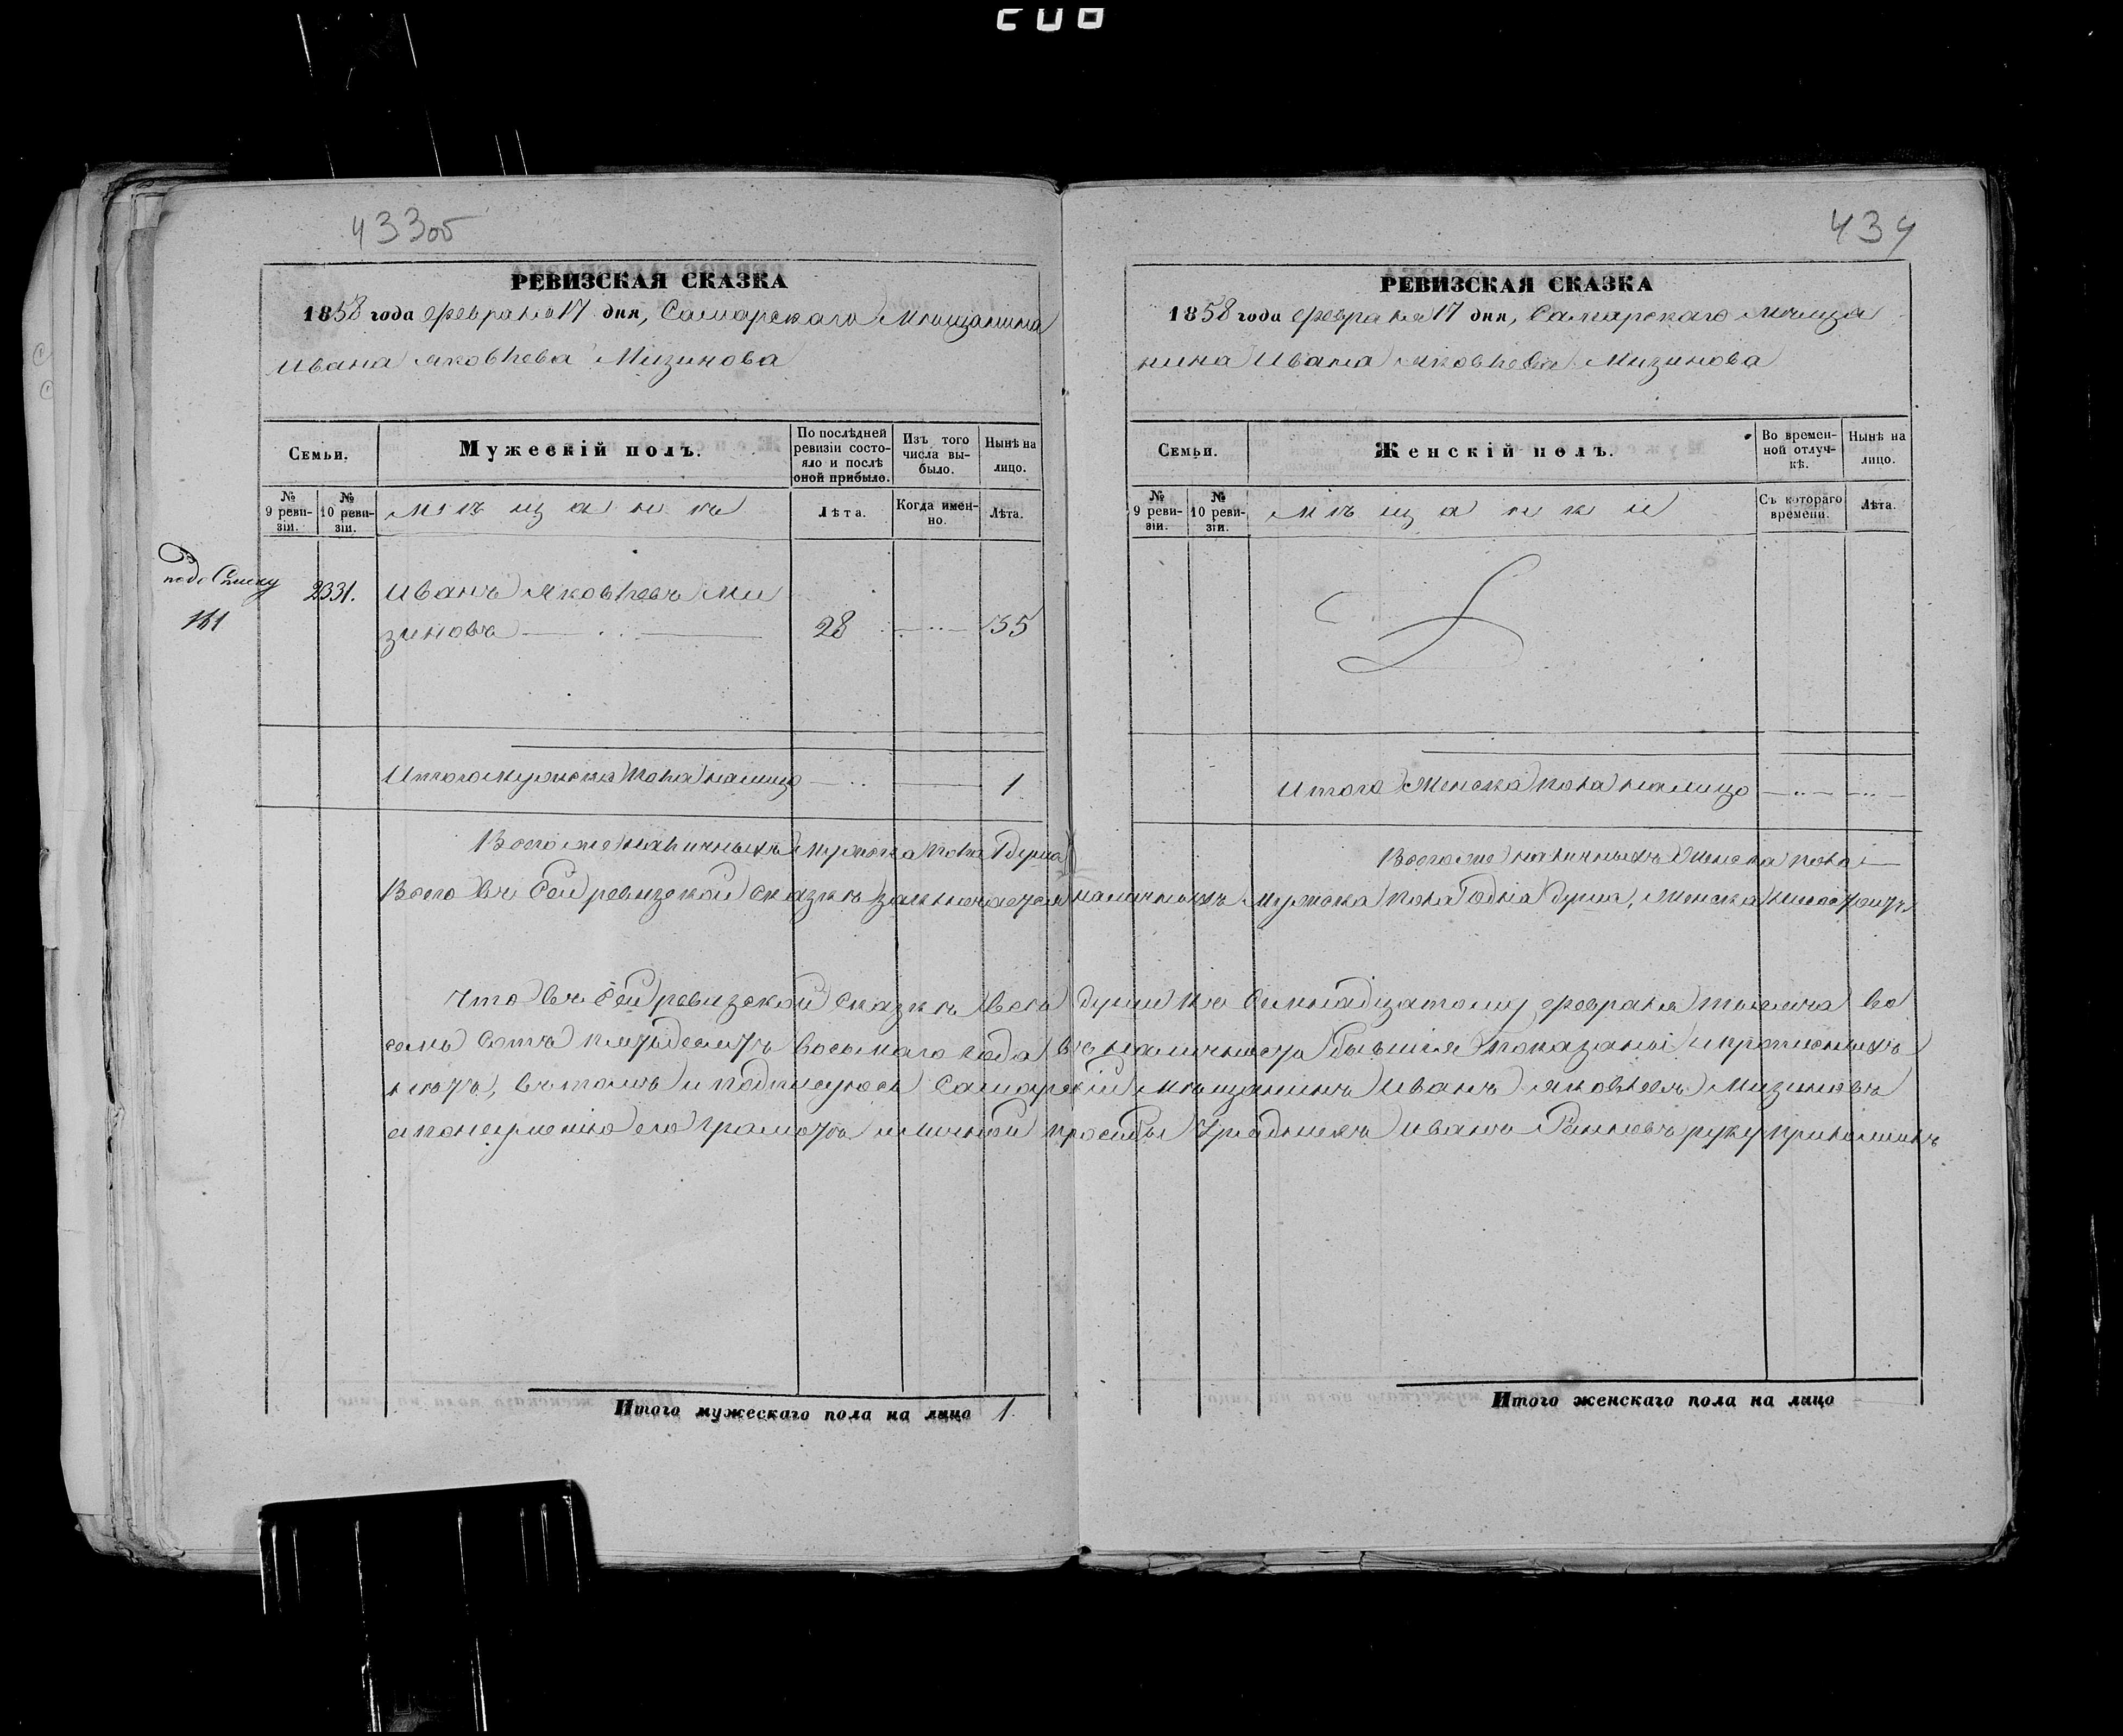 433об
РЕВИЗСКАЯ СКАЗКА
1858 года февраля 17 дня, Самарскаго Мещанина
Ивана Яковлева Мизинова
Семьи.
Мужескій полъ.
По послѣдней ревизіи состояло и послѣ оной прибыло.
Изъ того числа выбыло.
Нынѣ на лицо.
№ 9 ревизіи.
№ 10 ревизіи.
Мѣщане
Лѣта.
Когда именно.
Лѣта.
2331. Иванъ Яковлевъ Ми
161
зиновъ 28 55
Итого мужеска пола налицо 1
Всего же наличныхъ мужеска пола 1 душа
Итого мужескаго пола на лицо 1.
434
РЕВИЗСКАЯ СКАЗКА
1858 года февраля 17 дня, Самарскаго Меща
нина Ивана Яковлева Мизинова
Семьи.
Женскій полъ.
Во временной отлучкѣ.
Нынѣ на лицо.
№ 9 ревизіи.
№ 10 ревизіи.
Мѣщанки
Съ котораго времени.
Лѣта.
Итого Женска пола налицо
Всего же наличныхъ Женска пола
Всего въ сей ревизской сказкѣ заключается наличныхъ мужска пола одна душа, Женска
Что въ сей ревизской сказкѣ всѣ души къ семнадцатому февраля тысяча во
семь сотъ пятьдесятъ восьмаго года въ наличности бывшія показаны и прописныхъ
нѣтъ, въ томъ и подписуюсь Самарскій Мещанинъ Иванъ Яковлевъ Мизиновъ
а по неумѣнію его грамотѣ и личной просьбы Урядникъ Иванъ руку приложилъ
Итого женскаго пола на лицо